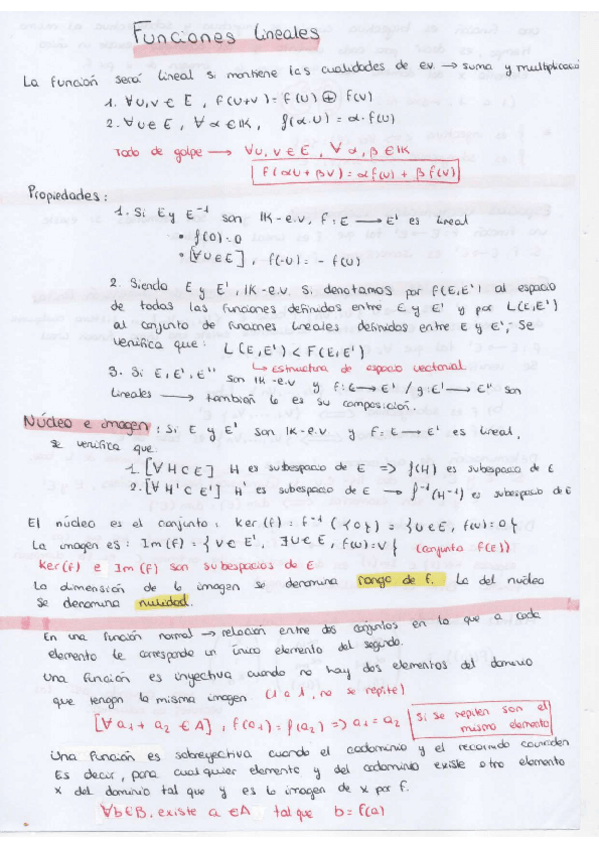 Funciones Lineales
La función será lineal si mantiene las cualidades de ev → suma y multiplicació
1. ∀u,v ∈ E, f(u+v) = f(u) ⊕ f(v)
2. ∀u ∈ E, ∀α ∈ IK, f(α.u) = α.f(u)
Todo de golpe → ∀u, v ∈ E, ∀α, β ∈ IK
f(αu + βv) = αf(u) + βf(v)
Propiedades:
1. Si E y E⁻¹ son IK-e.v, f: E → E' es lineal
• f(0)=0
• [∀u∈E], f(-u) = - f(u)
2. Siendo E y E', IK-e.v. Si denotamos por F(E,E') al espacio
de todas las funciones definidas entre E y E' y por L(E,E')
al conjunto de funciones lineales definidas entre E y E', Se
verifica que: L(E,E') < F(E,E')
↳ estructura de espacio vectorial.
3. Si E, E', E'' son IK-e.v y f: E → E' / g: E' → E'' son
lineales → también lo es su composición.
Núcleo e imagen: Si E y E' son IK-e.v. y f: E → E' es lineal,
se verifica que:
1. [∀ H ⊂ E] H es subespacio de E => f(H) es subespacio de E
2. [∀ H' ⊂ E'] H' es subespacio de E → f⁻¹(H⁻¹) es subespacio de E
El núcleo es el conjunto: Ker(f) : f⁻¹({0}) = {u∈E, f(u)=0}
La imagen es: Im(f) = {v∈ E', ∃u∈E, f(u)=v} (conjunto f(E))
Ker(f) e Im(f) son subespacios de E
La dimensión de la imagen se denomina rango de f. La del nucleo
se denomina nulidad.
En una función normal → relación entre dos conjuntos en lo que a cada
elemento le corresponde un único elemento del segundo.
Una función es inyectiva cuando no hay dos elementos del dominio
que tengan la misma imagen (1 a 1, no se repite)
[∀ a₁ + a₂ ∈ A], f(a₁) = f(a₂) => a₁ = a₂
Si se repiten son el
mismo elemento
Una función es sobreyectiva cuando el codominio y el recorrido coinciden
Es decir, para cualquier elemento y del codominio existe otro elemento
x del dominio tal que y es la imagen de x por f.
∀b∈B, existe a ∈A tal que b=f(a)